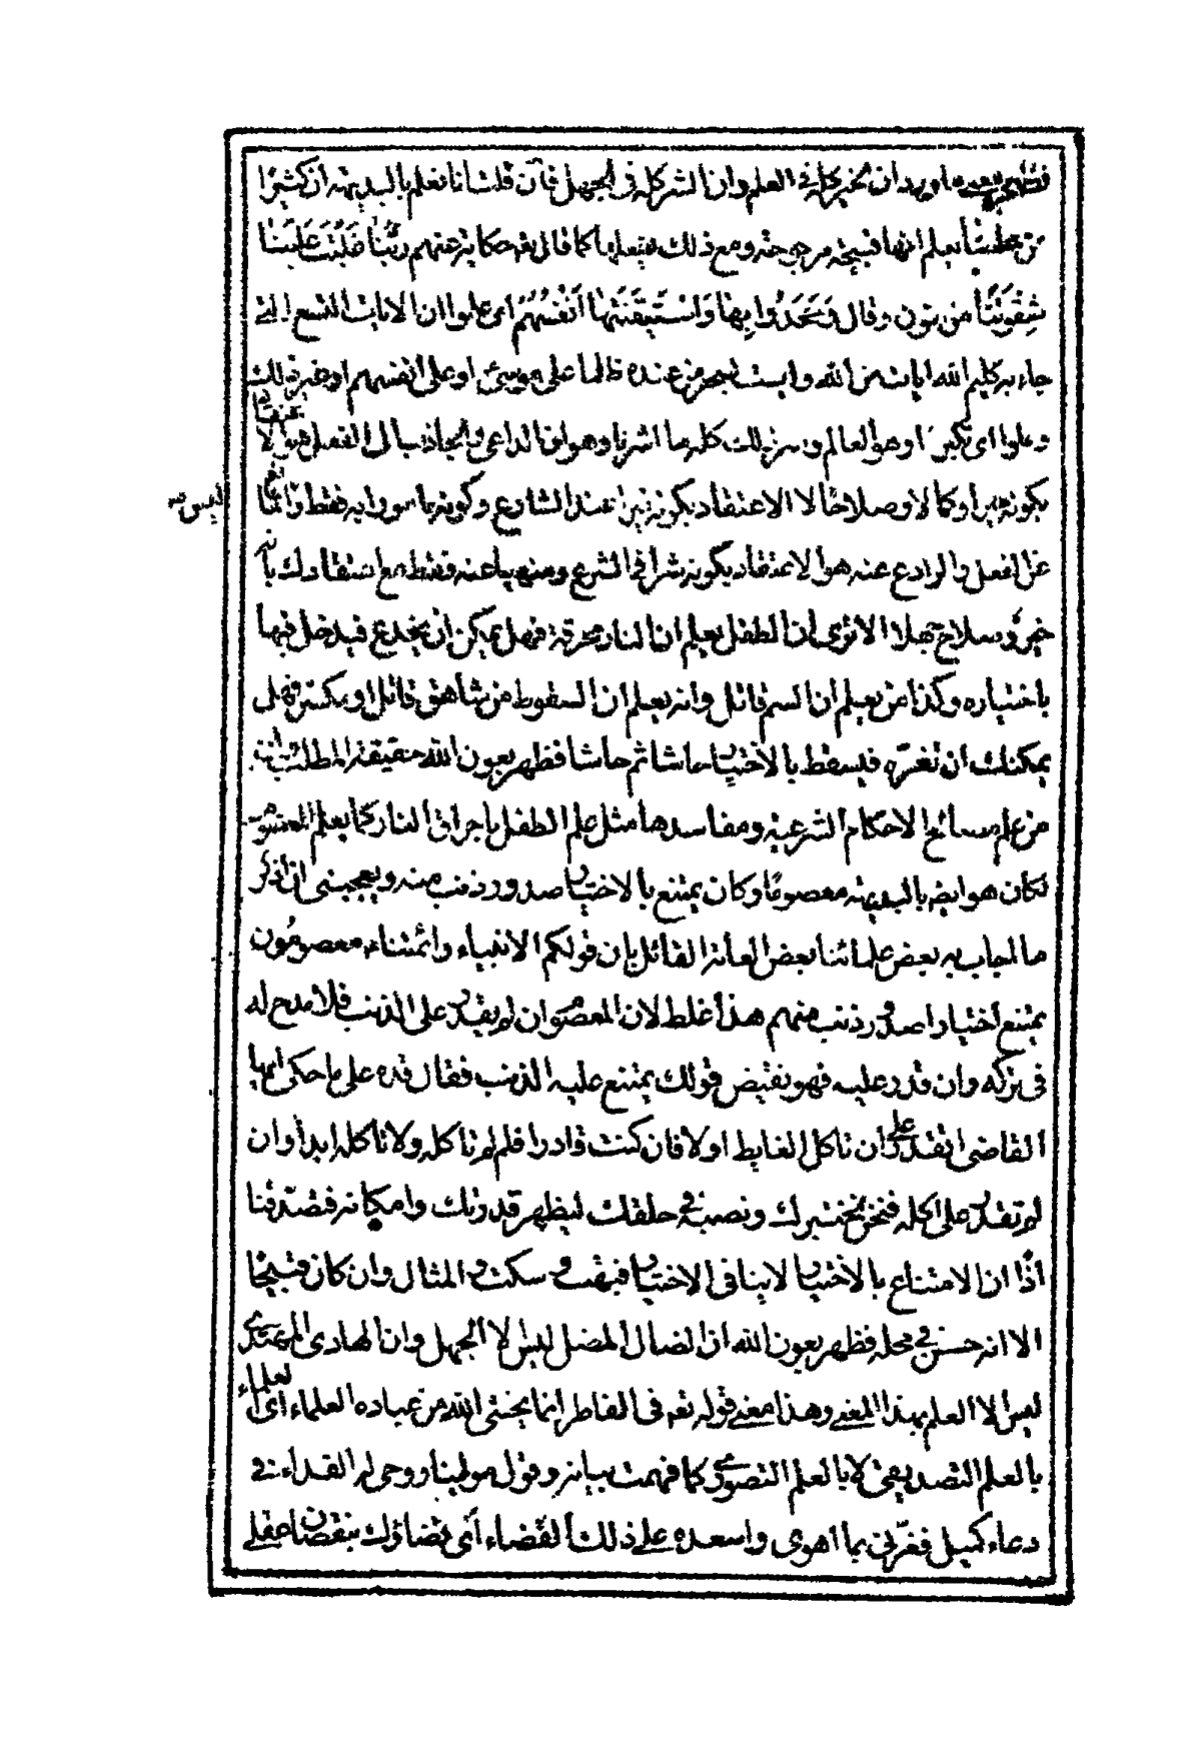 ما ورد ان الخير كله في العلم وان الشر كله في الجهل فان قلت انا نعلم بالبديهة ان كثيرا
من يعلم انها قبيحة مرجوحة ومع ذلك يفعلها كما قال تعه حكاية عنهم رَبَّنا غَلَبَتْ عَلَيْنا
شِقْوَتُنا وقال وَجَحَدُوا بِها وَاسْتَيْقَنَتْها اَنْفُسُهُمْ اى علموا ان الايات التسع التى
جاء بها كليم الله ايات من الله وليست بسحر من عنده ظالما على موسى او على انفسهم او غير ذلك
وعلوا اى تكبرا وهو العالم وسر ذلك كله ما اشرنا وهو ان الداعى والجاذب الى الفعل هو الا عتقاد
بكونه خيرا وكمالا وصلاحا لا الاعتقاد بكونه خيرا عند الشارع وكونه مامورا به فقط وانما
ليس صه
عن الفعل والرادع عنه هو الاعتقاد بكونه شرا فى الشرع ومنهيا عنه فقط مع اعتقادك بانه
خير وصلاح جهلا الا ترى ان الطفل يعلم ان النار محرقة فهل يمكن ان يخدع فيدخل فيها
باختياره وكذا من يعلم ان السم قاتل وانه يعلم ان السقوط من شاهق قاتل او مكسر فهل
يمكنك ان تغرّه فيسقط بالاختيار حاشا ثم حاشا فظهر بعون الله حقيقة المطلب ان
من علم مصالح الاحكام الشرعية ومفاسدها مثل علم الطفل باحراق النار كما يعلم المعصوم
لكان هو ايضا بالبديهة معصوما وكان يمتنع بالاختيار صدور ذنب منه ويعجبنى ان اذكر
ما اجاب به بعض علمائنا بعض العامة القائل بان قولكم الانبياء وائمتنا معصومون
يمتنع اختيارا صدور ذنب منهم هذا غلط لان المعصوم ان لم يقدر على الذنب فلا مدح له
فى تركه وان قدر عليه فهو نقيض قولك يمتنع عليه الذنب فقال قده على ما حكى ايها
القاضى اتقدر على ان تاكل الغايط او لا فان كنت قادرا فلم لم تاكله ولا تاكله ابدا وان
لم تقدر على اكله فنحن نختبرك ونصبه فى حلقك ليظهر قدرتك وامكانه فتصدقنا
اذا ان الامتناع بالاختيار لا ينافى الاختيار فبهت وسكت والمثال وان كان قبيحا
الا انه حسن فى محله فظهر بعون الله ان الضال المضل ليس الا الجهل وان الهادى المهتدى
ليس الا العلم بهذا المعنى وهذا معنى قوله تعه فى الفاطر انما يخشى الله من عباده العلماء اى العلماء
بالعلم التصديقى لا بالعلم التصورى كما فهمت بيانه وقول مولينا روحى له الفداء فى
دعاء كميل فغرّنى بما اهوى واسعده على ذلك القضاء اى قضاؤك بنقصان عقلى